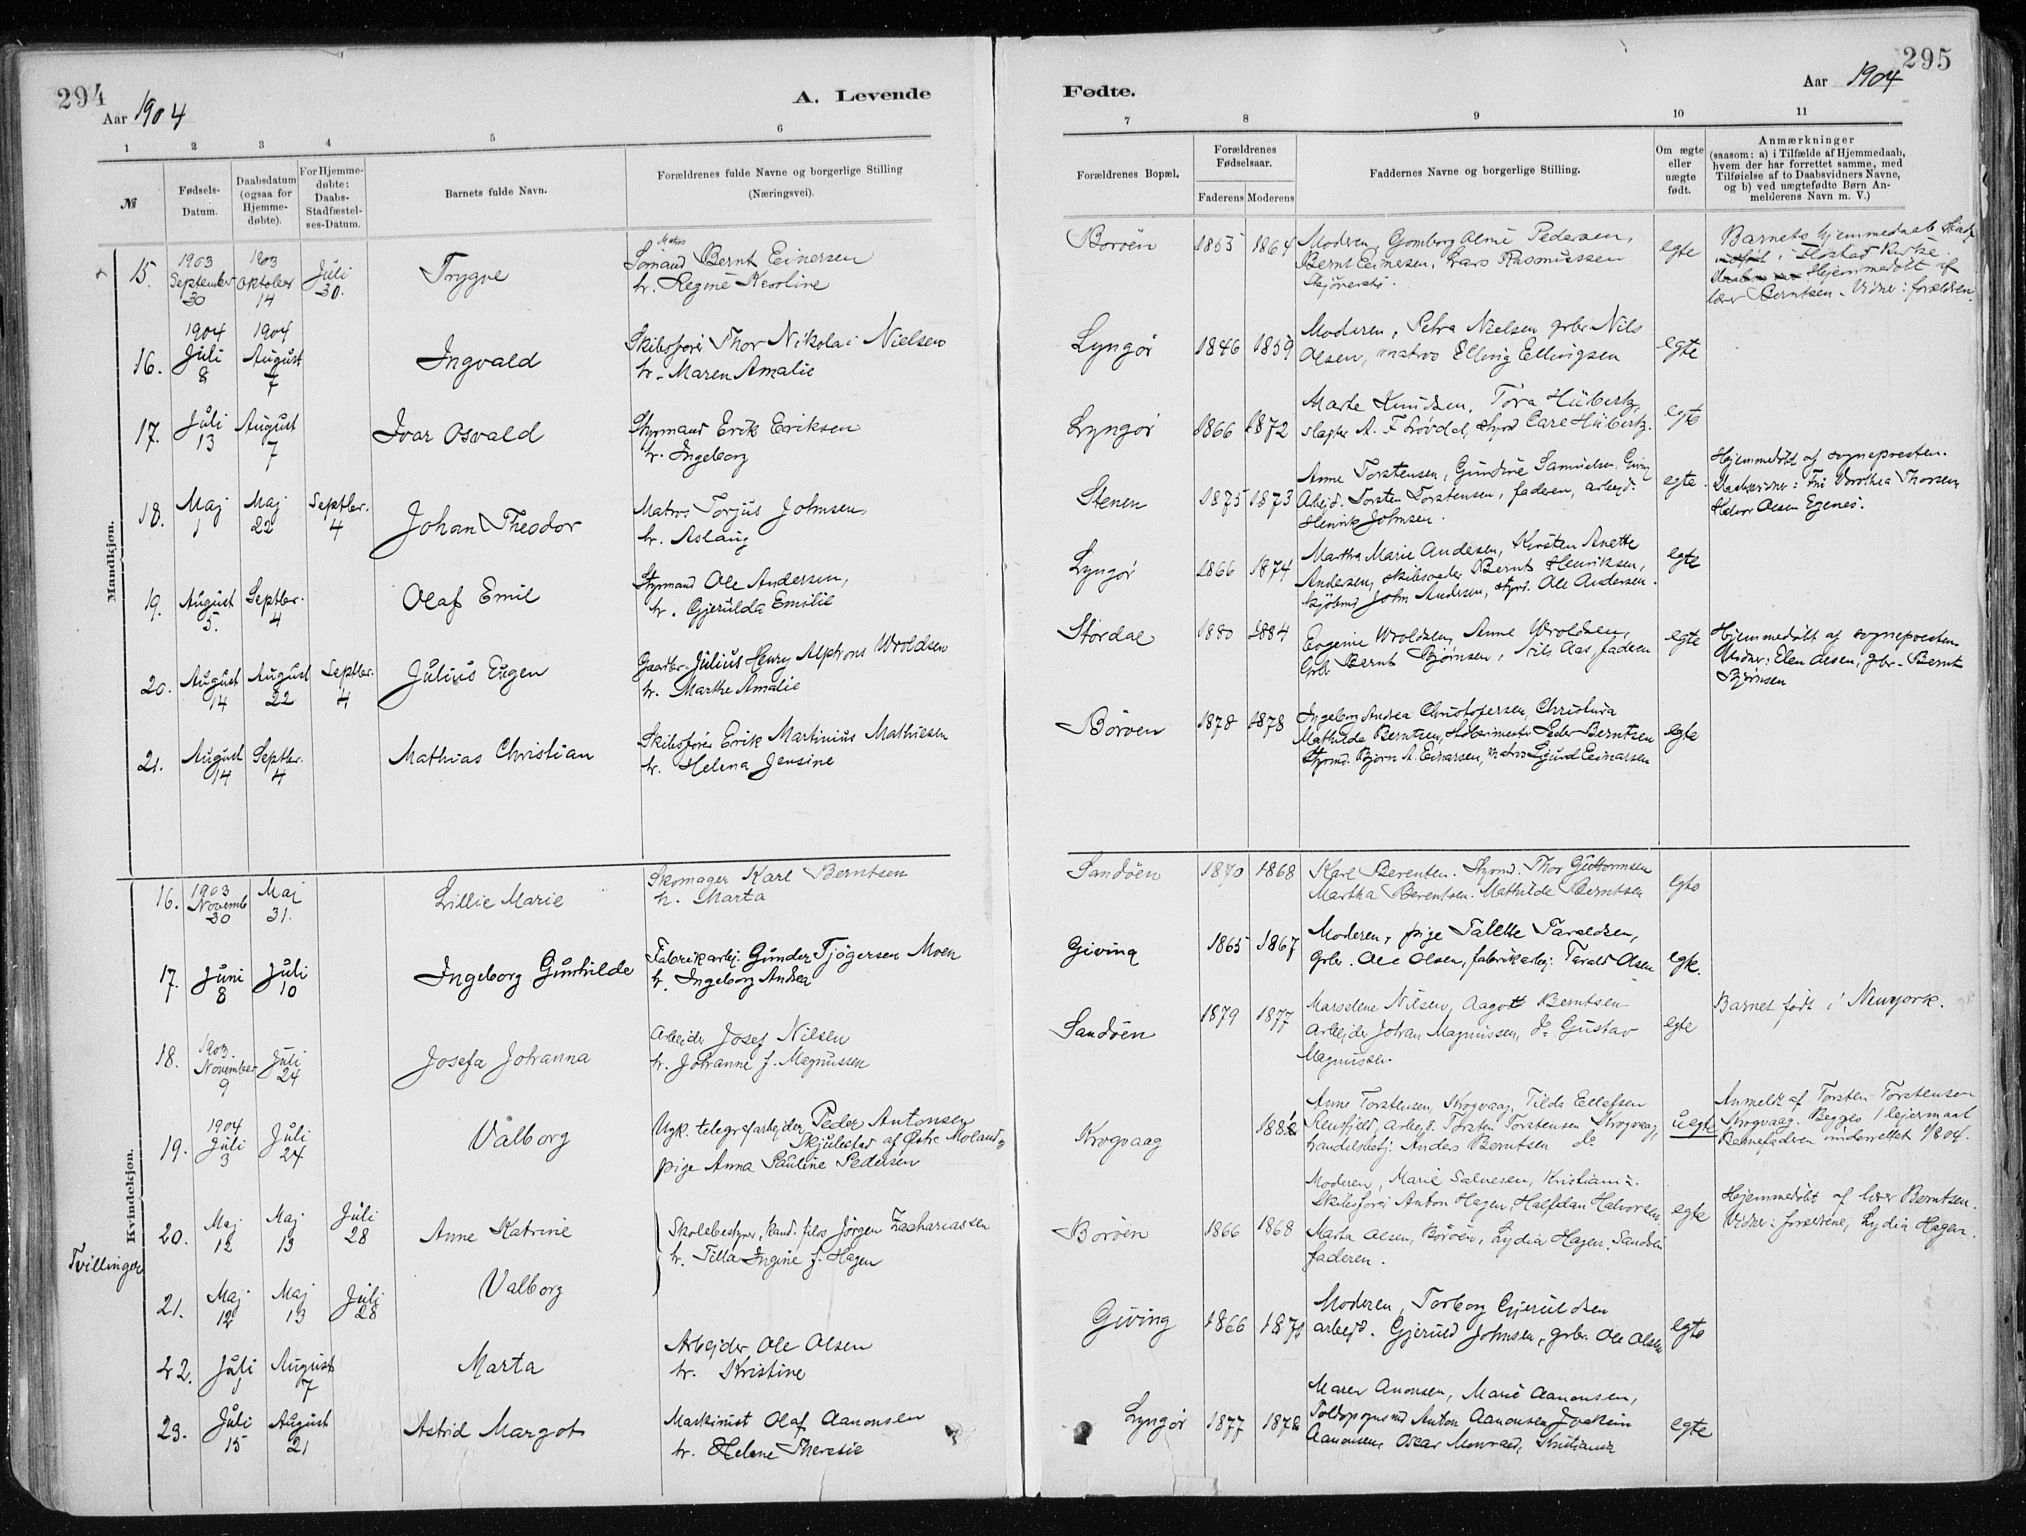 294
Aar 1904
A. Levende
1 2 3 4 5 6
№
Fødsels-
Datum.
Daabsdatum
(ogsaa for
Hjemme-
døbte).
For Hjemme-
døbte:
Daabs-
Stadfæstel-
ses-Datum.
Barnets fulde Navn.
Forældrenes fulde Navne og borgerlige Stilling
(Næringsvei).
Mandkjøn.
15. 1903 September 30 1903 Oktober 14 Juli 30. Trygve
Bernt Einersen
h. Regine Karoline
16. 1904 Juli 8 1904 August 7 Ingvald
Skibsfører Thor Nikolai Nielsen
h. Maren Amalie
17. Juli 13 August 7 Ivar Osvald
Styrmand Erik Eriksen
h. Ingeborg
18. Maj 1 Maj 22 Septbr. 4 Johan Theodor
Matros Torjus Johnsen
h. Aslaug
19. August 5. Septbr. 4 Olaf Emil
Styrmand Ole Andersen,
h. Gjerulda Emilie
20. August 14 August 22 Septbr. 4 Julius Eugen
Gaardbr. Julius Henry Alphons Wroldsen
h. Marthe Amalie
21. August 14 Septbr. 4 Mathias Christian
Skibsfører Erik Martinius Mathiesen
h. Helena Jensine
Kvindekjøn.
16. 1903 Novemb 30 Maj 31. Lillie Marie
Skomager Karl Berntsen
h. Marta
17. Juni 8 Juli 10 Ingeborg Gunhilde
Fabrikarbj. Gunder Tjøgersen Moen
h. Ingeborg Andrea
18. 1903 November 9 Juli 24 Josefa Johanna
Arbejder Josef Nilsen
h. Johanne f. Magnussen
19. 1904 Juli 3 Juli 24 Valborg
Ugk. telegrafarbejder Peder Antonsen
Skjulestad af Østre Moland,
pige Anna Pauline Pedersen
Tvillinger
20. Maj 12 Maj 13 Juli 28 Anne Katrine
Skolebestyrer, kand. filos Jørgen Zachariassen
h. Tilla Ingine f. Hagen
21. Maj 12 Maj 13 Juli 28 Valborg
22. Juli 1 August 7 Marta
Arbejder Ole Olsen
h. Kristine
23. Juli 15 August 21 Astrid Margot
Maskinist Olaf Aanonsen
h. Helene Theresie
295
Fødte.
Aar 1904
7 8 9 10 11
Forældrenes Bopæl.
Forældrenes
Fødselsaar.
Faderens Moderens
Faddernes Navne og borgerlige Stilling.
Om ægte
eller
uægte
født.
Anmærkninger
(saasom: a) i Tilfælde af Hjemmedaab,
hvem der har forrettet samme, med
Tilføielse af to Daabsvidners Navne,
og b) ved uægtefødte Børn An-
melderens Navn m. V.)
Borøen 1853 1864 Moderen, Gomborg Olme Pedersen,
Bernt Einersen, Lars Rasmussen
egte
Barnets hjemmedaab
i Flosta Kirke.
Hjemmedøbt af
lærer Berntsen. Vidner: forældren.
Lyngør 1846 1859 Moderen, Petra Nielsen grbr Nils
Olsen, matros Elling Ellingsen
egte
Lyngør 1866 1872 Marte Knudsen, Tora Hübertz,
slagter A. F. Løvdal, styrmd Carl Hübertz.
egte
Stenen 1875 1873 Anne Torstensen, Gundine Samuelsen, Giving
Arbejd. Torsten Torstensen, faderen, arbejd.
Henrik Johnsen.
egte.
Hjemmedøbt af sognepresten.
Daabsvidner: Fru Dorothea Thorsen,
Halvor Olsen Egenes.
Lyngør 1866 1874 Martha Marie Andersen, Kirsten Anette
Andersen, skibsreder Bernt Henriksen,
John Andersen, styrd. Ole Andersen.
egte
Stordal 1880 1884 Eugenie Wroldsen, Anne Wroldsen,
Grbr Bernt Bjørnsen, Nils Aas, faderen
egte
Hjemmedøbt af sognepresten
Vidner: Elen Olsen, gbr. Bernt
Bjørnsen
Børøen 1878 1878 Ingeborg Andrea Christofersen, Christina
Mathilde Berntsen, Peder Berntsen
Styrmd. Bjørn A. Einarsen, matros Sigurd Einarsen
egte
Sandøen 1870 1868 Karl Berentsen. Styrmd. Thor Guttormsen
Martha Berentsen. Mathilde Berntsen
egte
Giving 1865 1867 Moderen, pige Talette Taraldsen,
grbr. Ole Olsen, fabrikarbj. Tarald Olsen
egte.
Sandøen 1879 1877 Marselene Nilsen, Aagot Berntsen
Arbejder Johan Magnussen, do Gustav
Magnussen.
egte
Barnet født i Newyork.
Krogvaag 1882 Anne Torstensen, Krogvaag, Tilda Ellefsen
arbejd. Torsten Torstensen Krogvaag,
handelsbetj. Anders Berntsen do
uegte
Anmeldt af Torsten Torstensen
Krogvaag. Begges 1 lejermaal
Barnefaderen underrettet
Borøen 1866 1868 Moderen, Marie Salvesen, Kristian s.
Skibsfører Anton Hagen, Halfdan Halvorsen,
Marta Olsen, Borøen, Lydia Hagen, Sandøen
faderen.
egte
Hjemmedøbt af lærer Berntsen.
Vidner: forældrene, Lydia Hagen.
Giving 1866 1871 Moderen, Torborg Gjeruldsen
arbejd. Gjeruld Johnsen, grbr. Ole Olsen
egte
Lyngør 1877 1872 Maren Anonsen, Marie Aanonsen,
Anton Aanonsen, Joakim
Aanonsen, Oscar Monrad, Kristiania
egte